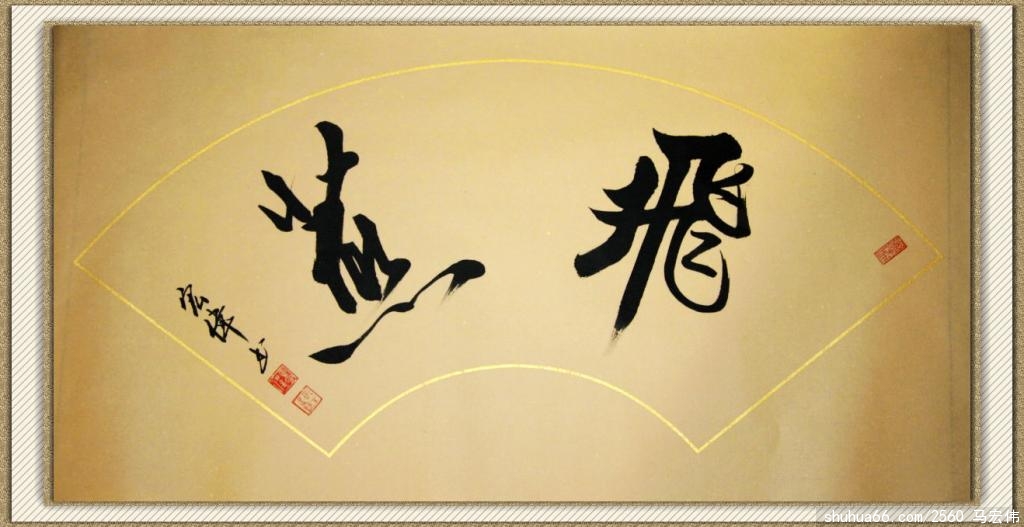 飛燕
宏偉书
shuhua66.com/2560 马宏伟